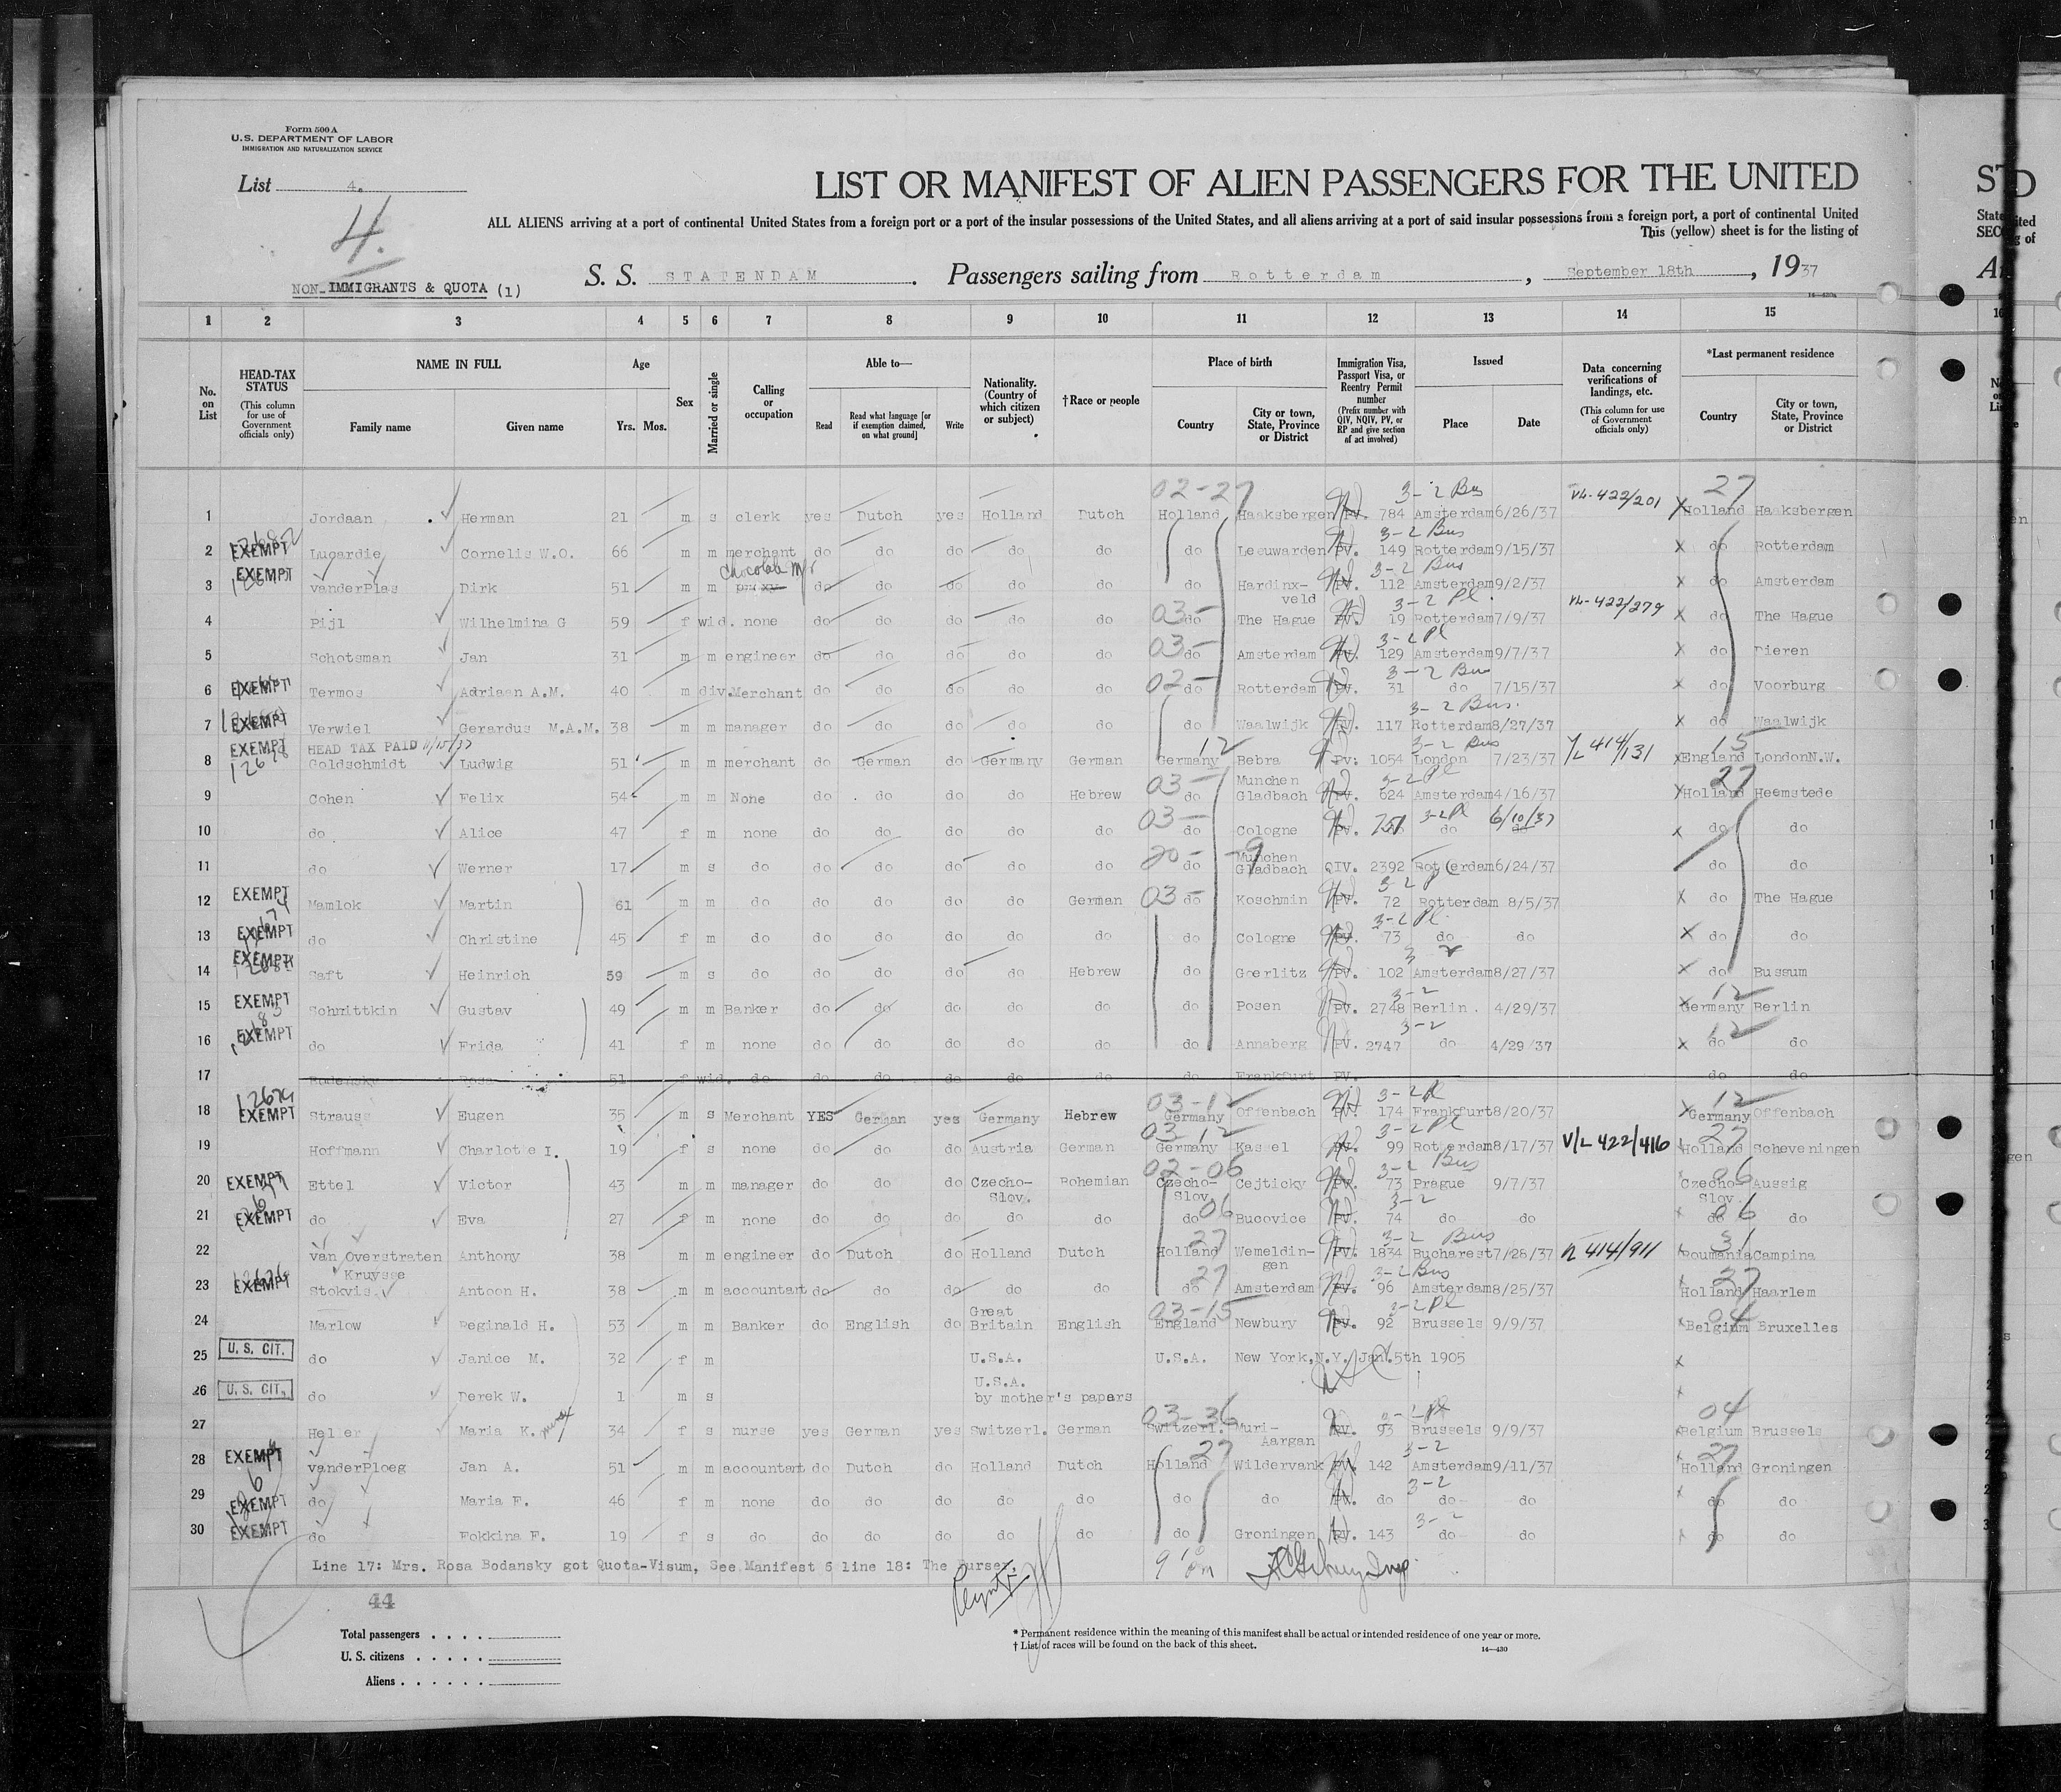 Form 500 A
U.S. DEPARTMENT OF LABOR
IMMIGRATION AND NATURALIZATION SERVICE
List 4.
4.
LIST OR MANIFEST OF ALIEN PASSENGERS FOR THE UNITED
ALL ALIENS arriving at a port of continental United States from a foreign port or a port of the insular possessions of the United States, and all aliens arriving at a port of said insular possessions from a foreign port, a port of continental United
This (yellow) sheet is for the listing of
NON-IMMIGRANTS & QUOTA (1)
S. S. STATENDAM. Passengers sailing from Rotterdam, September 18th, 1937
1 2 3 4 5 6 7 8 9 10 11 12 13 14 15
No. on List
HEAD-TAX STATUS (This column for use of Government officials only)
NAME IN FULL Family name Given name
Age Yrs. Mos.
Sex
Married or single
Calling or occupation
Able to— Read Read what language [or if exemption claimed, on what ground] Write
Nationality. (Country of which citizen or subject)
†Race or people
Place of birth Country City or town, State, Province or District
Immigration Visa, Passport Visa, or Reentry Permit number (Prefix number with QIV, NQIV, PV, or RP and give section of act involved)
Issued Place Date
Data concerning verifications of landings, etc. (This column for use of Government officials only)
*Last permanent residence Country City or town, State, Province or District
02-27 3-2 Bus 27
1 Jordaan Herman 21 m s clerk yes Dutch yes Holland Dutch Holland Haaksbergen PV. 784 Amsterdam 6/26/37 VL-422/201 X Holland Haaksbergen
3-2 Bus
2 EXEMPT Lugardie Cornelis W.O. 66 m m merchant do do do do do do Leeuwarden PV. 149 Rotterdam 9/15/37 X do Rotterdam
chocolate mfr 3-2 Bus
3 EXEMPT vanderPlas Dirk 51 m m proxy do do do do do do Hardinxveld PV. 112 Amsterdam 9/2/37 X do Amsterdam
3-2 Pl.
4 Pijl Wilhelmina G 59 f wid. none do do do do do 03- do The Hague PV. 19 Rotterdam 7/9/37 VL-422/279 X do The Hague
3-2 Pl
5 Schotsman Jan 31 m m engineer do do do do do 03- do Amsterdam PV. 129 Amsterdam 9/7/37 X do Dieren
3-2 Bus
6 EXEMPT Termos Adriaan A.M. 40 m div. Merchant do do do do do 02- do Rotterdam PV. 31 do 7/15/37 X do Voorburg
3-2 Bus.
7 EXEMPT Verwiel Gerardus M.A.M. 38 m m manager do do do do do do Waalwijk PV. 117 Rotterdam 8/27/37 X do Waalwijk
HEAD TAX PAID 11/15/37 12 3-2 Bus 15
8 EXEMPT 12678 Goldschmidt Ludwig 51 m m merchant do German do Germany German Germany Bebra PV: 1054 London 7/23/37 V/L 414/131 X England London N.W.
3-2 Pl 27
9 Cohen Felix 54 m m None do do do do Hebrew 03- do Munchen Gladbach PV. 624 Amsterdam 4/16/37 X Holland Heemstede
10 do Alice 47 f m none do do do do do 03- do Cologne PV. 751 3-2 Pl do 6/10/37 x do do
11 do Werner 17 m s do do do do do do 20- do -9 Munchen Gladbach QIV. 2392 Rotterdam 6/24/37 do do
3-2 Pl
12 EXEMPT Mamlok Martin 61 m m do do do do do German 03- do Koschmin PV. 72 Rotterdam 8/5/37 X do The Hague
3-2 Pl.
13 EXEMPT do Christine 45 f m do do do do do do do Cologne PV. 73 do do X do do
14 EXEMPT Saft Heinrich 59 m s do do do do do Hebrew do Goerlitz PV. 102 Amsterdam 8/27/37 X do Bussum
3-2 12
15 EXEMPT Schnittkin Gustav 49 m m Banker do do do do do do Posen PV. 2748 Berlin. 4/29/37 X Germany Berlin
3-2 12
16 EXEMPT do Frida 41 f m none do do do do do do Annaberg PV. 2747 do 4/29/37 X do do
17 Bodansky Rosa 51 f wid. do do do do do do do Frankfurt PV. do do
12674 03-12 3-2 Pl 12
18 EXEMPT Strauss Eugen 35 m s Merchant YES German yes Germany Hebrew Germany Offenbach PV. 174 Frankfurt 8/20/37 X Germany Offenbach
03-12 3-2 Pl 27
19 Hoffmann Charlotte I. 19 f s none do do do Austria German Germany Kassel PV. 99 Rotterdam 8/17/37 V/L 422/416 Holland Scheveningen
02-06 3-2 Bus 06
20 EXEMPT Ettel Victor 43 m m manager do do do Czecho-Slov. Bohemian Czecho-Slov. Cejticky PV. 73 Prague 9/7/37 Czecho-Slov. Aussig
3-2
21 EXEMPT do Eva 27 f m none do do do do do do 06 Bucovice PV. 74 do do do 06 do
27 3-2 Bus 31
22 van Overstraten Kruysse Anthony 38 m m engineer do Dutch do Holland Dutch Holland Wemeldingen PV. 1834 Bucharest 7/28/37 414/911 Roumania Campina
3-2 Bus 27
23 EXEMPT Stokvis Antoon H. 38 m m accountant do do do do do do 27 Amsterdam PV. 96 Amsterdam 8/25/37 Holland Haarlem
03-15 3-2 Pl 04
24 Marlow Reginald H. 53 m m Banker do English do Great Britain English England Newbury PV. 92 Brussels 9/9/37 Belgium Bruxelles
25 U. S. CIT. do Janice M. 32 f m U.S.A. U.S.A. New York, N.Y. Jan. 5th 1905 x
26 U. S. CIT. do Derek W. 1 m s U.S.A. by mother's papers
03-36 04
27 Heller Maria K. 34 f s nurse yes German yes Switzerl. German Switzerl. Muri-Aargan PV. 93 Brussels 9/9/37 Belgium Brussels
27 3-2 27
28 EXEMPT vanderPloeg Jan A. 51 m m accountant do Dutch do Holland Dutch Holland Wildervank PV. 142 Amsterdam 9/11/37 Holland Groningen
3-2
29 EXEMPT do Maria F. 46 f m none do do do do do do do PV. do do do do do
3-2
30 EXEMPT do Fokkina F. 19 f s do do do do do do do Groningen PV. 143 do do do do
Line 17: Mrs. Rosa Bodansky got Quota-Visum, See Manifest 6 line 18: The Purser.
44
Total passengers
U. S. citizens
Aliens
* Permanent residence within the meaning of this manifest shall be actual or intended residence of one year or more.
† List of races will be found on the back of this sheet.
14—430